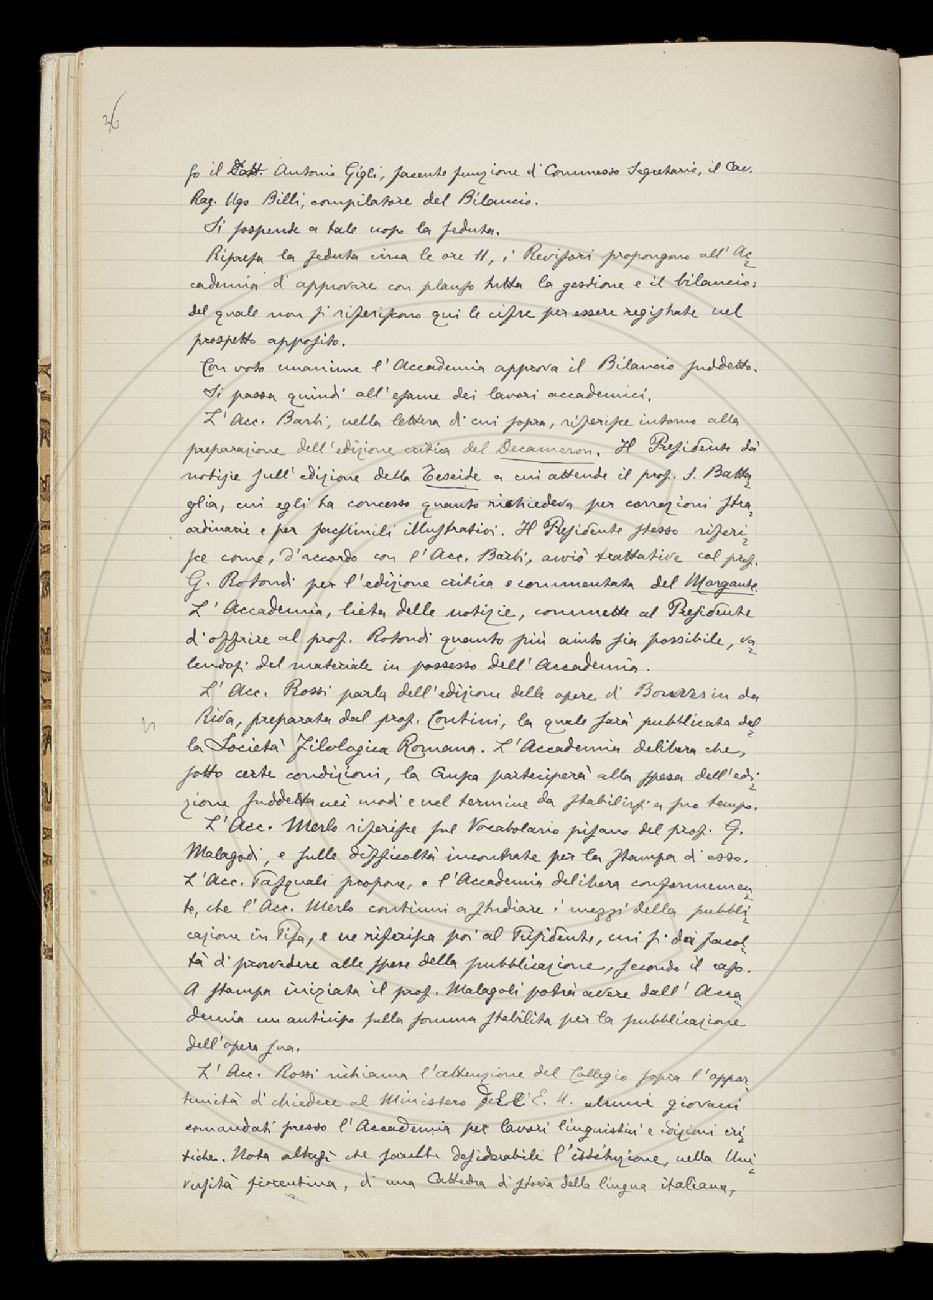 36
so il Dott. Antonio Gigli, facente funzione di Commesso Segretario, il Cav.
Rag. Ugo Billi, compilatore del Bilancio.
Si sospende a tale uopo la seduta.
Ripresa la seduta circa le ore 11, i Revisori propongono all'Ac=
cademia di approvare con plauso tutta la gestione e il bilancio;
del quale non si riferiscono qui le cifre per essere registrate nel
prospetto apposito.
Con voto unanime l'Accademia approva il Bilancio suddetto.
Si passa quindi all'esame dei lavori accademici.
L'Acc. Barbi, nella lettera di cui sopra, riferisce intorno alla
preparazione dell'edizione critica del Decameron. Il Presidente dà
notizie sull'edizione della Teseide a cui attende il prof. S. Batta=
glia, cui egli ha concesso quanto richiedeva per correzioni stra=
ordinarie e per facsimili illustrativi. Il Presidente stesso riferi=
sce come, d'accordo con l'Acc. Barbi, avviò trattative col prof.
G. Rotondi per l'edizione critica e commentata del Morgante.
L'Accademia, lieta delle notizie, commette al Presidente
d'offrire al prof. Rotondi quanto più aiuto sia possibile, va=
lendosi del materiale in possesso dell'Accademia.
L'Acc. Rossi parla dell'edizione delle opere di Bonvesin da
Riva, preparata dal prof. Contini, la quale sarà pubblicata dal=
la Società Filologica Romana. L'Accademia delibera che,
sotto certe condizioni, la Crusca parteciperà alla spesa dell'edi=
zione suddetta nei modi e nel termine da stabilirsi a suo tempo.
L'Acc. Merlo riferisce sul Vocabolario pisano del prof. G.
Malagodi, e sulle difficoltà incontrate per la stampa di esso.
L'Acc. Pasquali propone, e l'Accademia delibera conformemen=
te, che l'Acc. Merlo continui a studiare i mezzi della pubbli=
cazione in Pisa, e ne riferisca poi al Presidente, cui si dà facol=
tà di provvedere alle spese della pubblicazione, secondo il caso.
A stampa iniziata il prof. Malagoli potrà avere dall'Acca
demia un anticipo sulla somma stabilita per la pubblicazione
dell'opera sua.
L'Acc. Rossi richiama l'attenzione del Collegio sopra l'oppor=
tunità di chiedere al Ministero dell'E. N. alcuni giovani
comandati presso l'Accademia per lavori linguistici e edizioni cri=
tiche. Nota altresì che sarebbe desiderabile l'istituzione, nella Uni=
versità fiorentina, di una Cattedra di storia della lingua italiana,